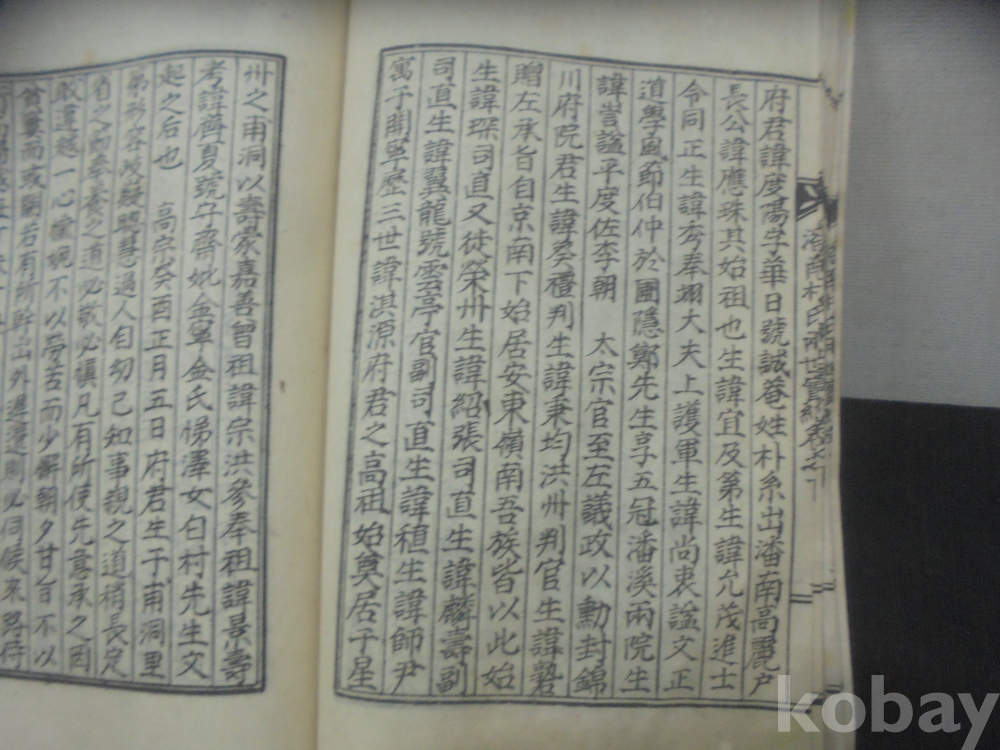 府君諱度陽字華日號誠菴姓朴系出潘南高麗户
長公諱應珠其始祖也生諱宜及第生諱允茂進士
令同正生諱秀奉翊大夫上護軍生諱尚衷謚文正
道學風節伯仲於圃隱鄭先生享五冠潘溪兩院生
諱訔謚平度佐李朝 太宗官至左議政以勳封錦
川府院君生諱葵禮判生諱秉均洪州判官生諱磬
贈左承旨自京南下始居安東嶺南吾族皆以此始
生諱琛司直又徙榮州生諱紹張司直生諱麟壽副
司直生諱翼龍號雲亭官副司直生諱稙生諱師尹
寓于開寧歷三世諱淇源府君之高祖始奠居于星
州之甫洞以壽蒙嘉善曾祖諱宗洪參奉祖諱景壽
考諱 夏號守齋妣金寧金氏悌澤女臼村先生文
起之后也 高宗癸酉正月五日府君生于甫洞里
弟形容岐嶷聰慧過人自幼已知事親之道稍長定
省之 奉養之道必敬必慎凡有所使先意承之罔
敢違越一心愉婉不以勞苦而少懈朝夕甘旨不以
貧窶而或闕若有所幹出外遲 則必伺候來路待
kobay